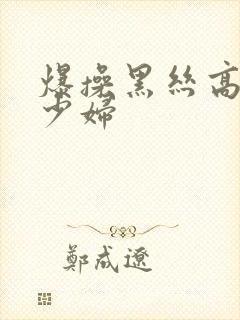 爆操黑丝高
少妇
鄭成遼